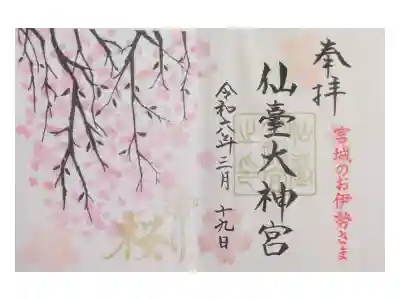 奉拝
宮城のお伊勢さま
仙臺大神宮
令和六年三月十九日
桜